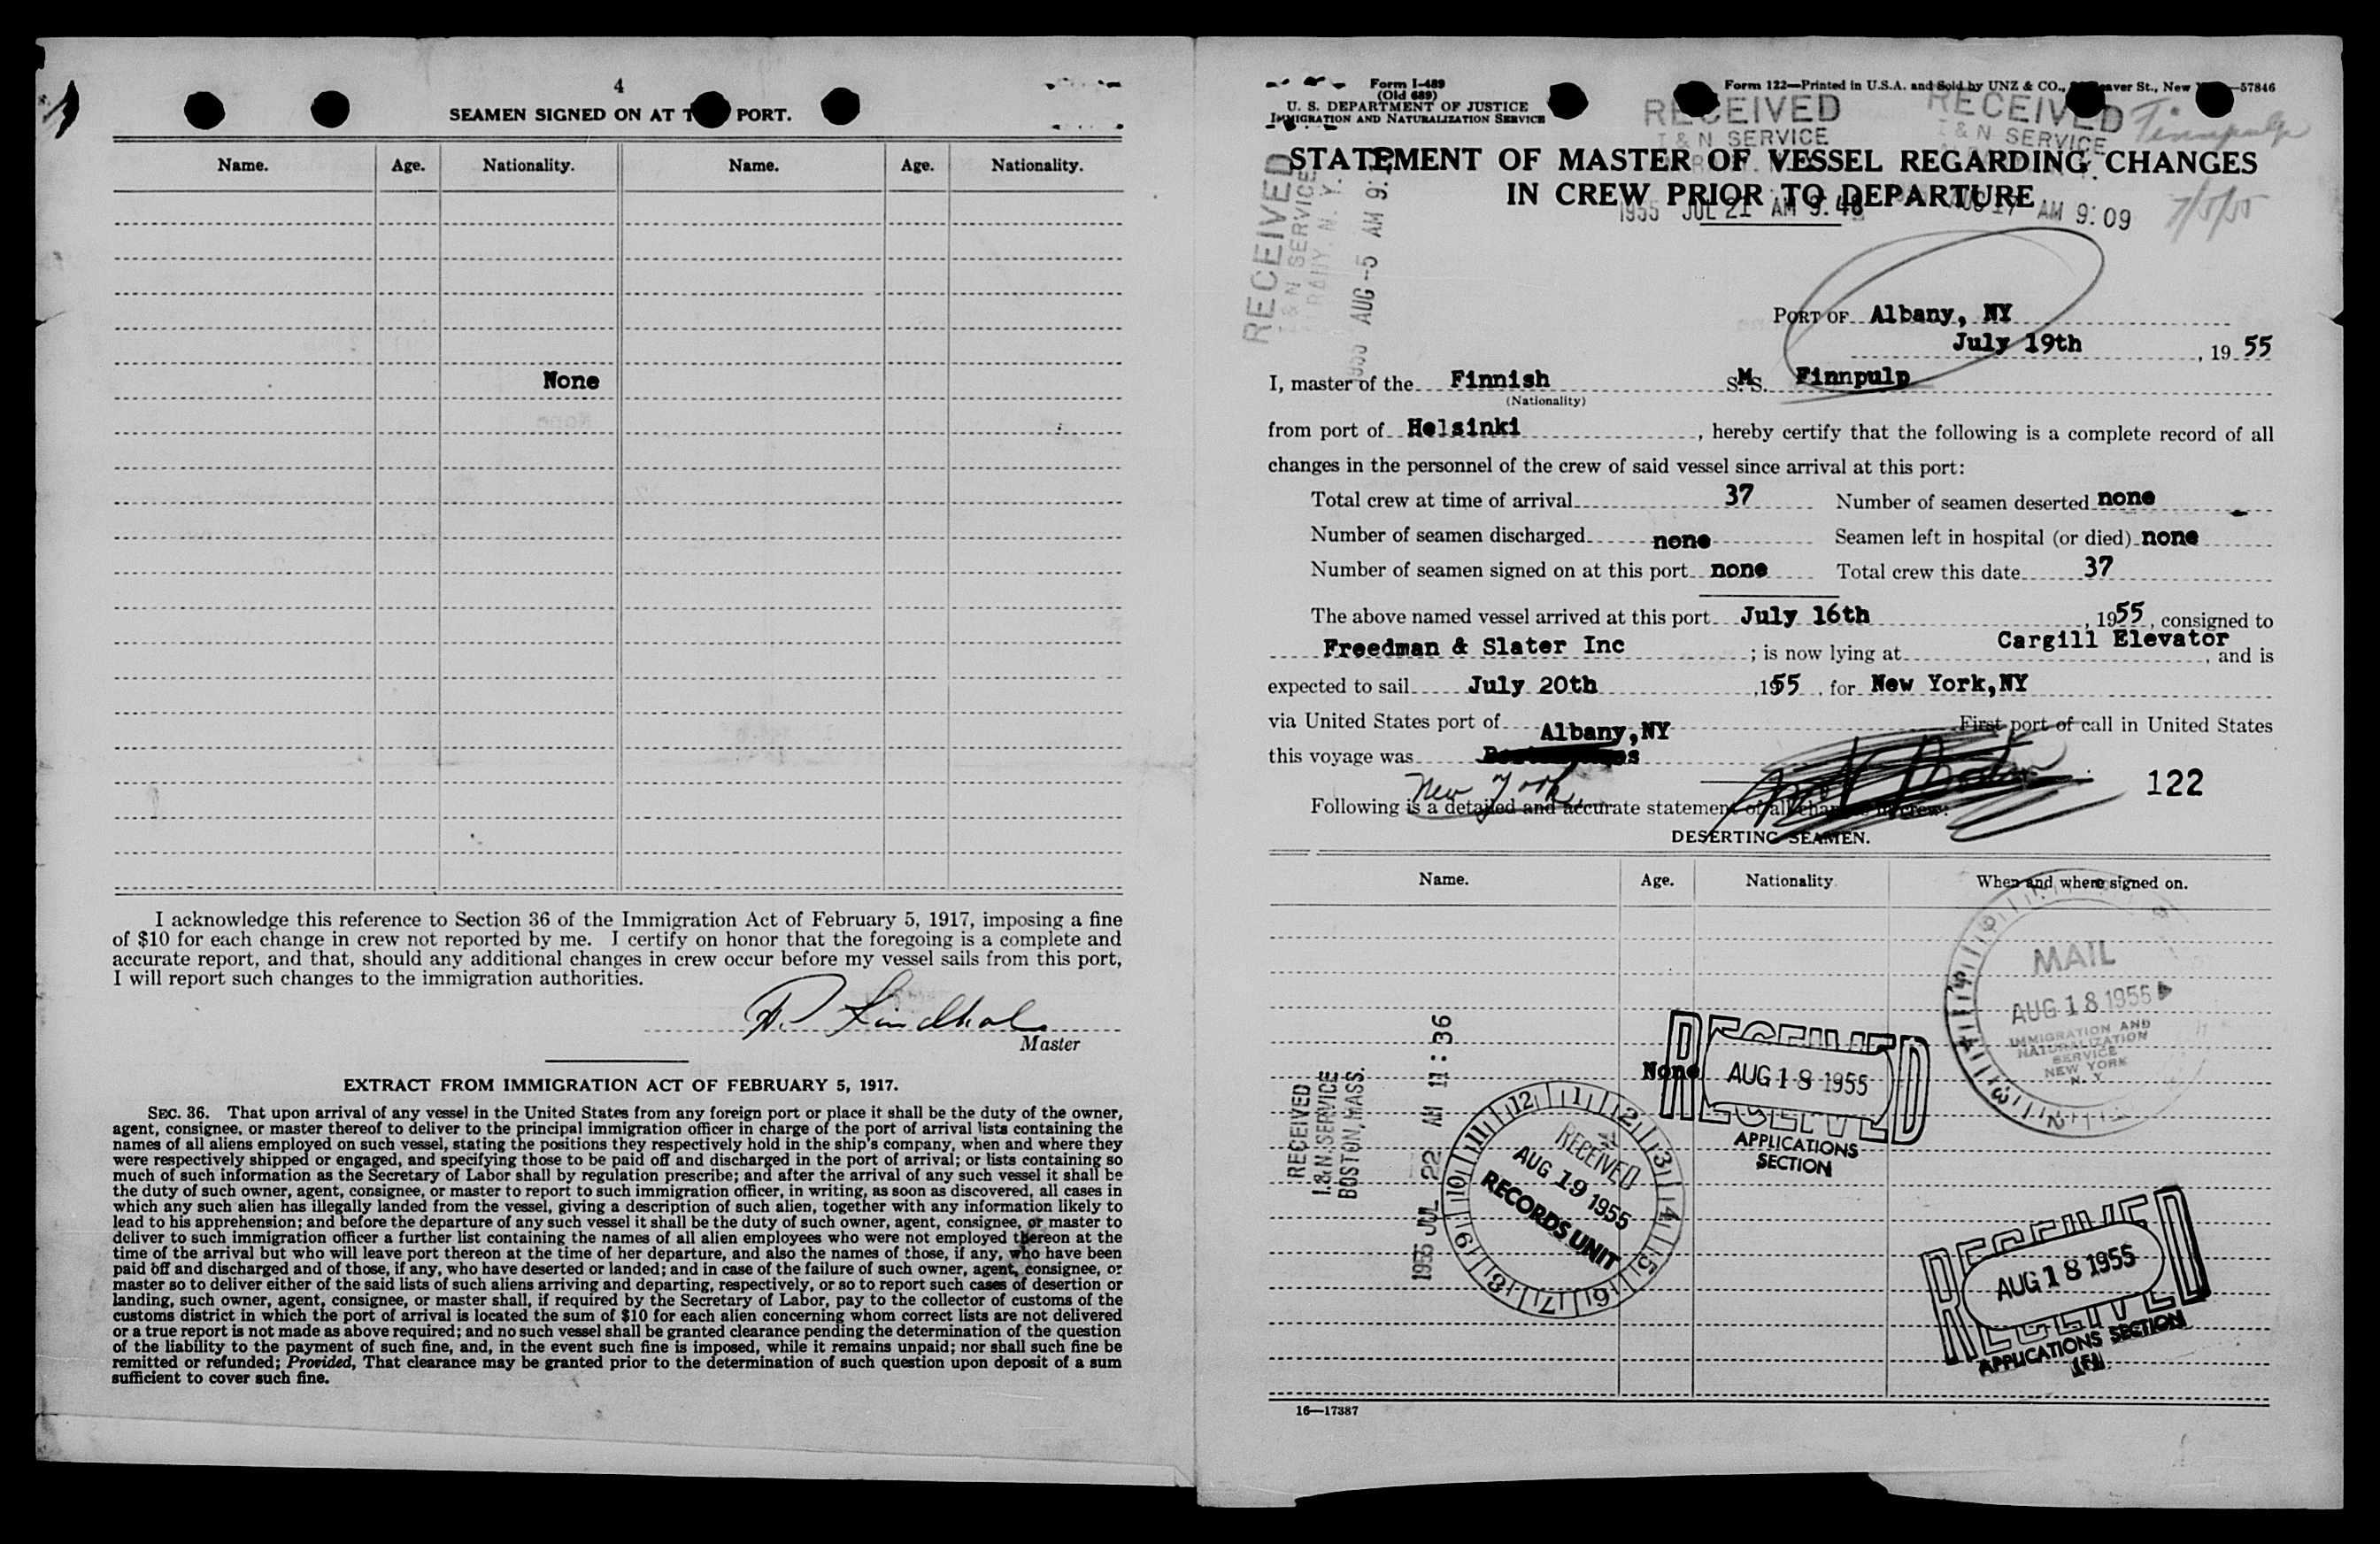 4
SEAMEN SIGNED ON AT T PORT.
Name. Age. Nationality. Name. Age. Nationality.
None
I acknowledge this reference to Section 36 of the Immigration Act of February 5, 1917, imposing a fine
of $10 for each change in crew not reported by me. I certify on honor that the foregoing is a complete and
accurate report, and that, should any additional changes in crew occur before my vessel sails from this port,
I will report such changes to the immigration authorities.
Lindholm
Master
EXTRACT FROM IMMIGRATION ACT OF FEBRUARY 5, 1917.
SEC. 36. That upon arrival of any vessel in the United States from any foreign port or place it shall be the duty of the owner,
agent, consignee, or master thereof to deliver to the principal immigration officer in charge of the port of arrival lists containing the
names of all aliens employed on such vessel, stating the positions they respectively hold in the ship's company, when and where they
were respectively shipped or engaged, and specifying those to be paid off and discharged in the port of arrival; or lists containing so
much of such information as the Secretary of Labor shall by regulation prescribe; and after the arrival of any such vessel it shall be
the duty of such owner, agent, consignee, or master to report to such immigration officer, in writing, as soon as discovered, all cases in
which any such alien has illegally landed from the vessel, giving a description of such alien, together with any information likely to
lead to his apprehension; and before the departure of any such vessel it shall be the duty of such owner, agent, consignee, or master to
deliver to such immigration officer a further list containing the names of all alien employees who were not employed thereon at the
time of the arrival but who will leave port thereon at the time of her departure, and also the names of those, if any, who have been
paid off and discharged and of those, if any, who have deserted or landed; and in case of the failure of such owner, agent, consignee, or
master so to deliver either of the said lists of such aliens arriving and departing, respectively, or so to report such cases of desertion or
landing, such owner, agent, consignee, or master shall, if required by the Secretary of Labor, pay to the collector of customs of the
customs district in which the port of arrival is located the sum of $10 for each alien concerning whom correct lists are not delivered
or a true report is not made as above required; and no such vessel shall be granted clearance pending the determination of the question
of the liability to the payment of such fine, and, in the event such fine is imposed, while it remains unpaid; nor shall such fine be
remitted or refunded; Provided, That clearance may be granted prior to the determination of such question upon deposit of a sum
sufficient to cover such fine.
Form I-489
(Old 689)
U. S. DEPARTMENT OF JUSTICE
IMMIGRATION AND NATURALIZATION SERVICE
Form 122—Printed in U.S.A. and Sold by UNZ & CO., eaver St., New —57846
Finnpulp
7/5/55
RECEIVED
I & N SERVICE
1955 JUL 21 AM 9:48
RECEIVED
I & N SERVICE
AUG 17 AM 9:09
RECEIVED
I & N SERVICE
ALBANY, N. Y.
1955 AUG -5 AM 9:
STATEMENT OF MASTER OF VESSEL REGARDING CHANGES
IN CREW PRIOR TO DEPARTURE
PORT OF Albany, NY
July 19th, 1955
I, master of the Finnish S.M.S. Finnpulp
(Nationality)
from port of Helsinki, hereby certify that the following is a complete record of all
changes in the personnel of the crew of said vessel since arrival at this port:
Total crew at time of arrival 37 Number of seamen deserted none
Number of seamen discharged none Seamen left in hospital (or died) none
Number of seamen signed on at this port none Total crew this date 37
The above named vessel arrived at this port July 16th, 1955, consigned to
Freedman & Slater Inc; is now lying at Cargill Elevator, and is
expected to sail July 20th, 1955, for New York,NY
via United States port of Albany,NY First port of call in United States
this voyage was
New York
122
Following is a detailed and accurate statement of all changes in crew:
DESERTING SEAMEN.
Name. Age. Nationality. When and where signed on.
None
MAIL
AUG 18 1955
IMMIGRATION AND
NATURALIZATION
SERVICE
NEW YORK
N. Y.
RECEIVED
AUG 18 1955
RECEIVED
APPLICATIONS
SECTION
RECEIVED
I.&N.SERVICE
BOSTON, MASS.
1955 JUL 22 AM 11:36
12 1 2 3 4 5 6 7 8 9 10 11
RECEIVED
AUG 19 1955
RECORDS UNIT
RECEIVED
AUG 18 1955
RECEIVED
APPLICATIONS SECTION
16—17387